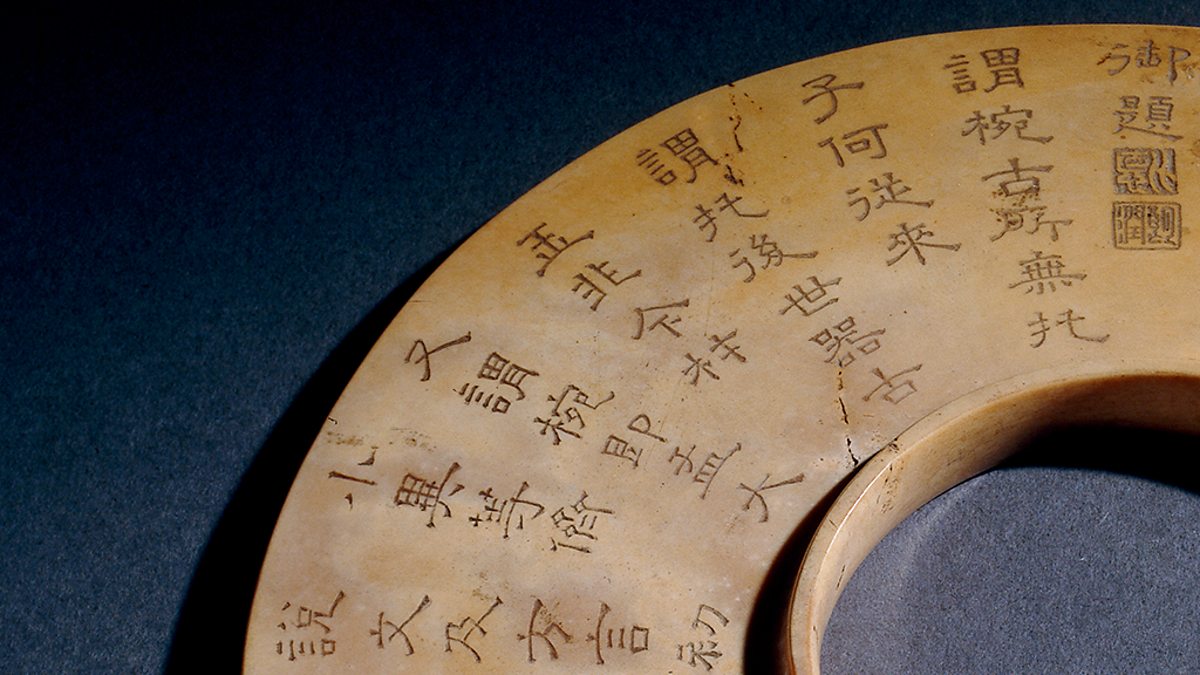 御題
謂椀古所無托
子何從來
謂托後世器古
玉非今材
又謂椀即盂大
小異等儕
說文及方言